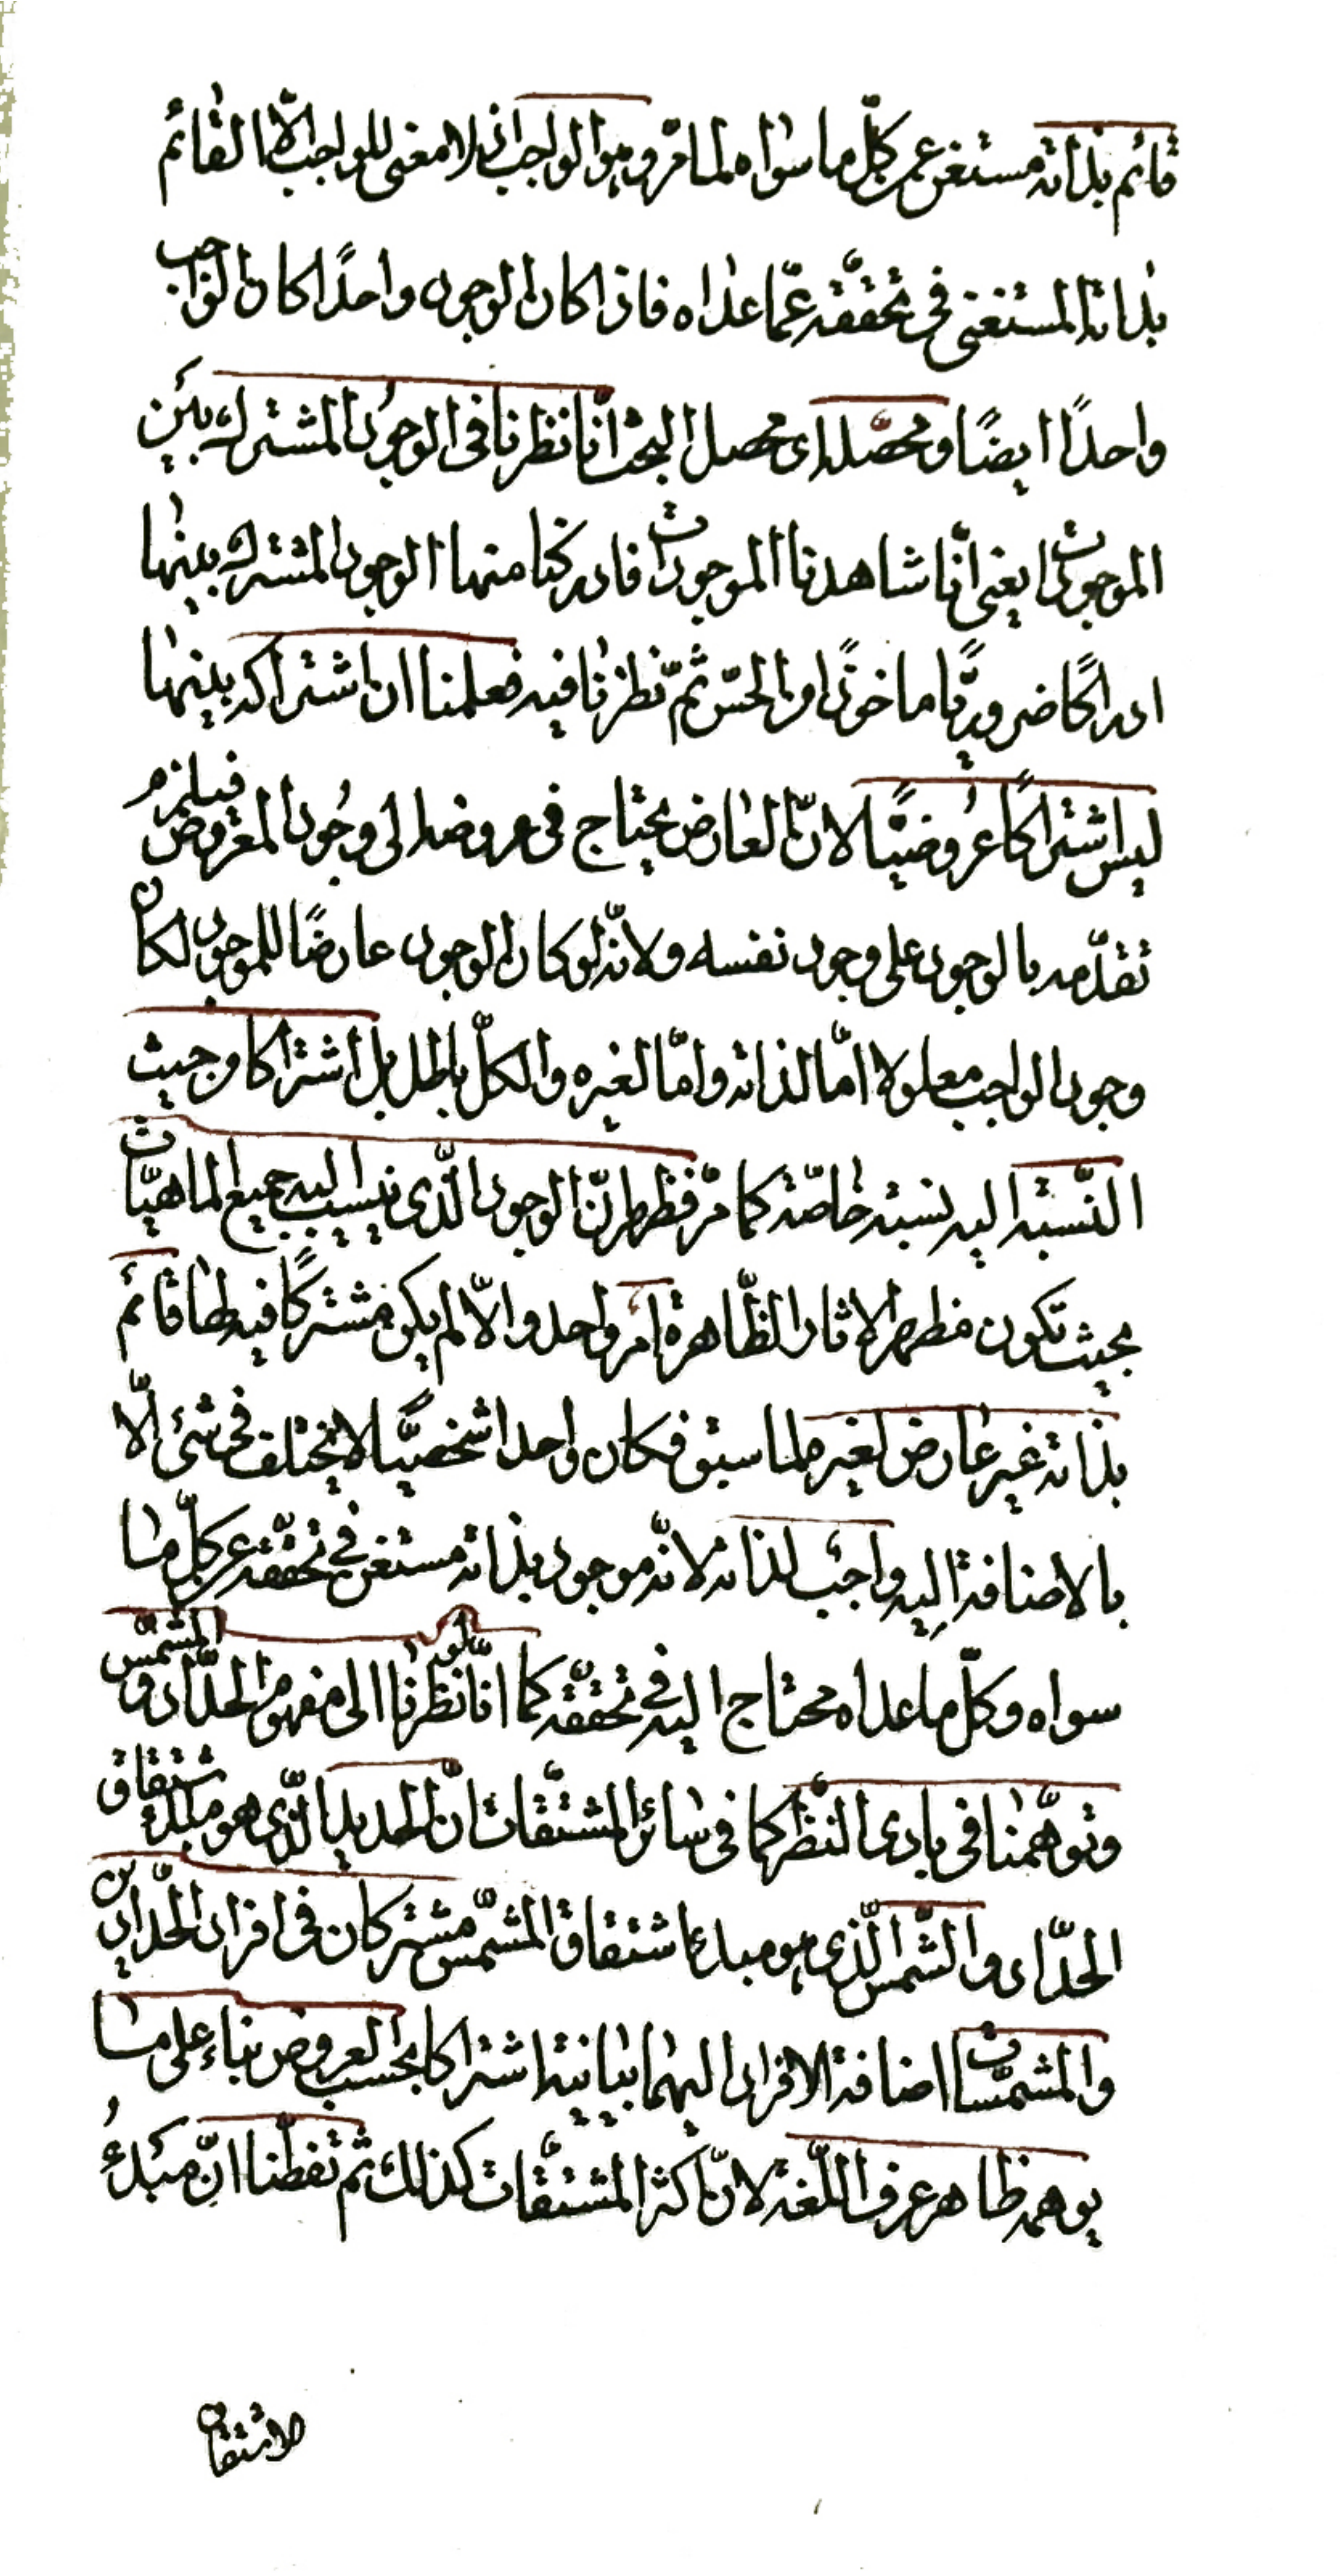 قائم بذاته مستغن عن كلّ ما سواه لما مرّ وهو الواجب اذ لا معنى للواجب الّا القائم
بذاته المستغنى فى تحققه عمّا عداه فاذا كان الوجود واحدًا كان الواجب
واحدًا ايضًا ومحصّله اى محصل البحث انّا نظرنا فى الوجود المشترك بين
الموجودات يعنى انّا شاهدنا الموجودات فادركنا منها الوجود المشترك بينها
ادراكًا ضروريًّا ماخوذًا من الحسّ ثمّ نظرنا فيه فعلمنا ان اشتراكه بينها
ليس اشتراكًا عُروضيًّا لانّ العارض يحتاج فى عروضه الى وجُود المعروض فيلزم
تقدّمه بالوجود على وجود نفسه ولانّه لو كان الوجود عارضًا للموجود لكان
وجود الواجب معلولا امّا لذاته وامّا لغيره والكلّ باطل بل اشتراكا من حيث
النّسبة اليه نسبة خاصّة كما مرّ فظهر انّ الوجود الّذى ينسب اليه جميع الماهيّات
بحيث تكون مظهر الاثار الظّاهرة امر واحد والّا لم يكن مشتركًا فيه لها قائم
بذاته غير عارض لغيره لما سبق فكان واحدا شخصيًّا لا يختلف فى شئ الّا
بالاضافة اليه واجب لذاته لانّه موجود بذاته مستغن فى تحقّقه عن كلّ ما
سواه وكلّ ما عداه محتاج اليه فى تحقّقه كما انّا لو نظرنا الى مفهوم الحدّاد والمشمّس
وتوهّمنا فى بادى النّظر كما فى سائر المشتقّات انّ الحديد الّذى هو مبدء اشتقاق
الحدّاد والشّمس الّذى هو مبدء اشتقاق المشمّس مشتركان فى افراد الحدّادين
والمشمّسات اضافة الافراد اليهما بيانية اشتراكا بحسب العروض بناء على ما
يوهمه ظاهر عرف اللّغة لانّ اكثر المشتقّات كذلك ثم تفطّنا انّ مبدءُ
الاشتقاق